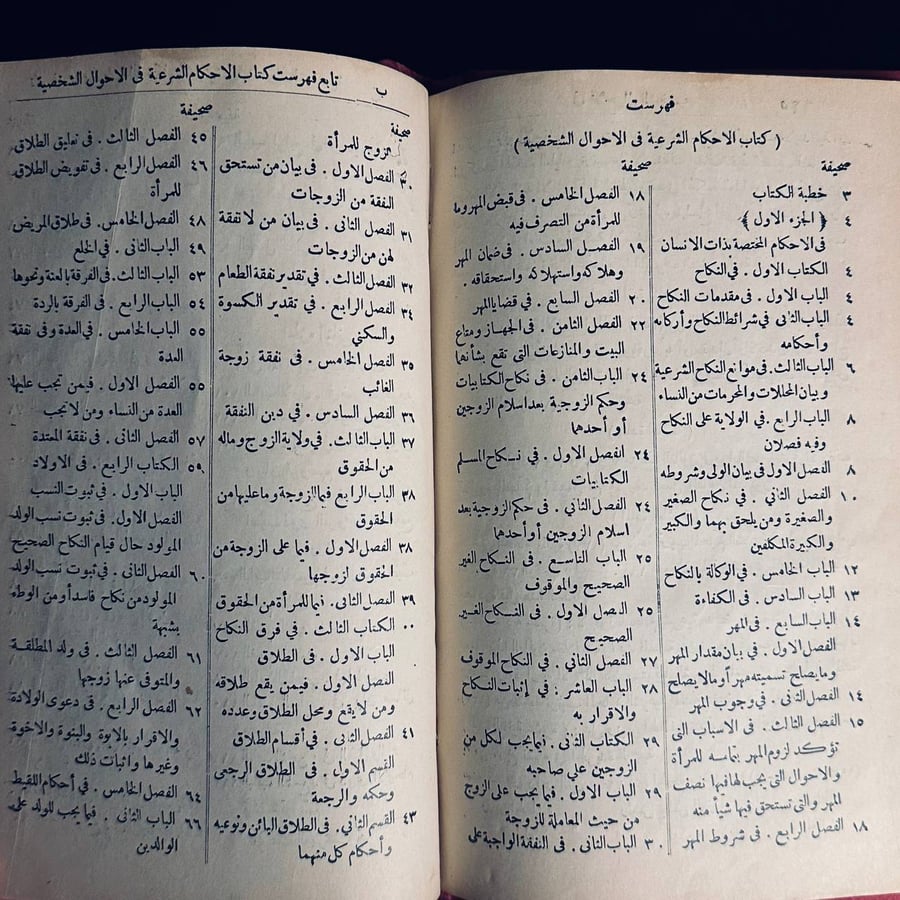 فهرست
( كتاب الاحكام الشرعية فى الاحوال الشخصية )
صحيفة
٣ خطبة الكتاب
٤ ﴿ الجزء الاول ﴾
فى الاحكام المختصة بذات الانسان
٤ الكتاب الاول . فى النكاح
٤ الباب الاول . فى مقدمات النكاح
٤ الباب الثانى فى شرائط النكاح وأركانه
وأحكامه
٦ الباب الثالث . فى موانع النكاح الشرعية
وبيان المحللات والمحرمات من النساء
٨ الباب الرابع . فى الولاية على النكاح
وفيه فصلان
٨ الفصل الاول فى بيان الولى وشروطه
١٠ الفصل الثاني . في نكاح الصغير
والصغيرة ومن يلحق بهما والكبير
والكبيرة المكلفين
١٢ الباب الخامس . فى الوكالة بالنكاح
١٣ الباب السادس . فى الكفاءة
١٤ الباب السابع . فى المهر
الفصل الاول . فى بيان مقدار المهر
وما يصلح تسميته مهراً وما لا يصلح
١٤ الفصل الثانى . فى وجوب المهر
١٥ الفصل الثالث . فى الاسباب التى
تؤكد لزوم المهر بتمامه للمرأة
والاحوال التى يجب لها فيها نصف
المهر والتى تستحق فيها شيأ منه
١٨ الفصل الرابع . فى شروط المهر
صحيفة
١٨ الفصل الخامس . فى قبض المهر وما
للمرأة من التصرف فيه
١٩ الفصل السادس . فى ضمان المهر
وهلاكه واستهلاكه واستحقاقه .
٢٠ الفصل السابع . فى قضايا المهر
٢٢ الفصل الثامن . فى الجهاز ومتاع
البيت والمنازعات التى تقع بشأنهما
٢٤ الباب الثامن . فى نكاح الكتابيات
وحكم الزوجية بعد اسلام الزوجين
أو أحدهما
٢٤ الفصل الاول . في نكاح المسلم
الكتابيات
٢٤ الفصل الثاني . فى حكم الزوجية بعد
اسلام الزوجين أو أحدهما
٢٥ الباب التاسع . فى النكاح الغير
الصحيح والموقوف
٢٥ الفصل الاول . فى النكاح الغير
الصحيح
٢٧ الفصل الثاني . في النكاح الموقوف
٢٨ الباب العاشر : في إثبات النكاح
والاقرار به
٢٩ الكتاب الثانى . فيما يجب لكل من
الزوجين على صاحبه
٢٩ الباب الاول . فيما يجب على الزوج
من حيث المعاملة للزوجة
٣٠ الباب الثانى . فى النفقة الواجبة على
ب
تابع فهرست كتاب الاحكام الشرعية فى الاحوال الشخصية
صحيفة
الزوج للمرأة
٣٠ الفصل الاول . فى بيان من تستحق
النفقة من الزوجات
٣١ الفصل الثانى . فى بيان من لا نفقة
لهن من الزوجات
٣٢ الفصل الثالث . فى تقدير نفقة الطعام
٣٤ الفصل الرابع . فى تقدير الكسوة
والسكني
٣٥ الفصل الخامس . فى نفقة زوجة
الغائب
٣٦ الفصل السادس . في دين النفقة
٣٧ الباب الثالث . فى ولاية الزوج وماله
من الحقوق
٣٨ الباب الرابع فيما للزوجة وما عليها من
الحقوق
٣٨ الفصل الاول . فيما على الزوجة من
الحقوق لزوجها
٣٩ الفصل الثانى . فيما للمرأة من الحقوق
٠٠ الكتاب الثالث . في فرق النكاح
الباب الاول . فى الطلاق
الفصل الاول . فيمن يقع طلاقه
ومن لا يقع ومحل الطلاق وعدده
٤١ الفصل الثانى . فى أقسام الطلاق
القسم الاول . فى الطلاق الرجعى
وحكمه والرجعة
٤٣ القسم الثاني . فى الطلاق البائن ونوعيه
وأحكام كل منهما
صحيفة
٤٥ الفصل الثالث . فى تعليق الطلاق
٤٦ الفصل الرابع . فى تفويض الطلاق
للمرأة
٤٨ الفصل الخامس . فى طلاق المريض
٤٩ الباب الثانى . فى الخلع
٥٣ الباب الثالث . فى الفرقة بالعنة ونحوها
٥٤ الباب الرابع . فى الفرقة بالردة
٥٥ الباب الخامس . فى العدة وفى نفقة
العدة
٥٥ الفصل الاول . فيمن تجب عليها
العدة من النساء ومن لا تجب
٥٧ الفصل الثانى . فى نفقة المعتدة
٥٩ الكتاب الرابع . فى الاولاد
الباب الاول . فى ثبوت النسب
الفصل الاول . فى ثبوت نسب الولد
المولود حال قيام النكاح الصحيح
٦٠ الفصل الثانى . فى ثبوت نسب الولد
المولود من نكاح فاسد أو من الوطء
بشبهة
٦١ الفصل الثالث . فى ولد المطلقة
والمتوفى عنها زوجها
٦٢ الفصل الرابع . فى دعوى الولادة
والاقرار بالابوة والبنوة والاخوة
وغيرها واثبات ذلك
٦٤ الفصل الخامس . فى أحكام اللقيط
٦٦ الباب الثانى . فيما يجب للولد على
الوالدين